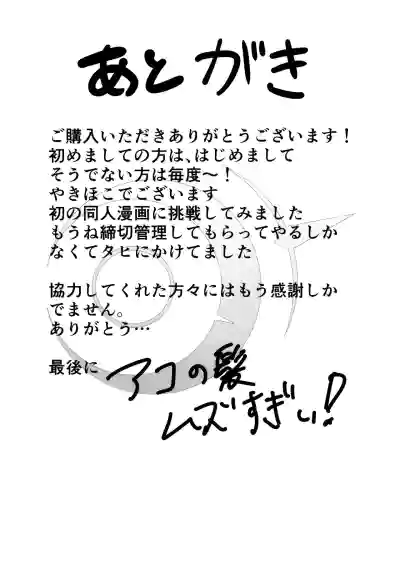 あとがき
ご購入いただきありがとうございます！
初めましての方は、はじめまして
そうでない方は毎度〜！
やきほこでございます
初の同人漫画に挑戦してみました
もうね締切管理してもらってやるしか
なくてタヒにかけてました
協力してくれた方々にはもう感謝しか
でません。
ありがとう…
最後に アコの髪
ムズすぎぃ！